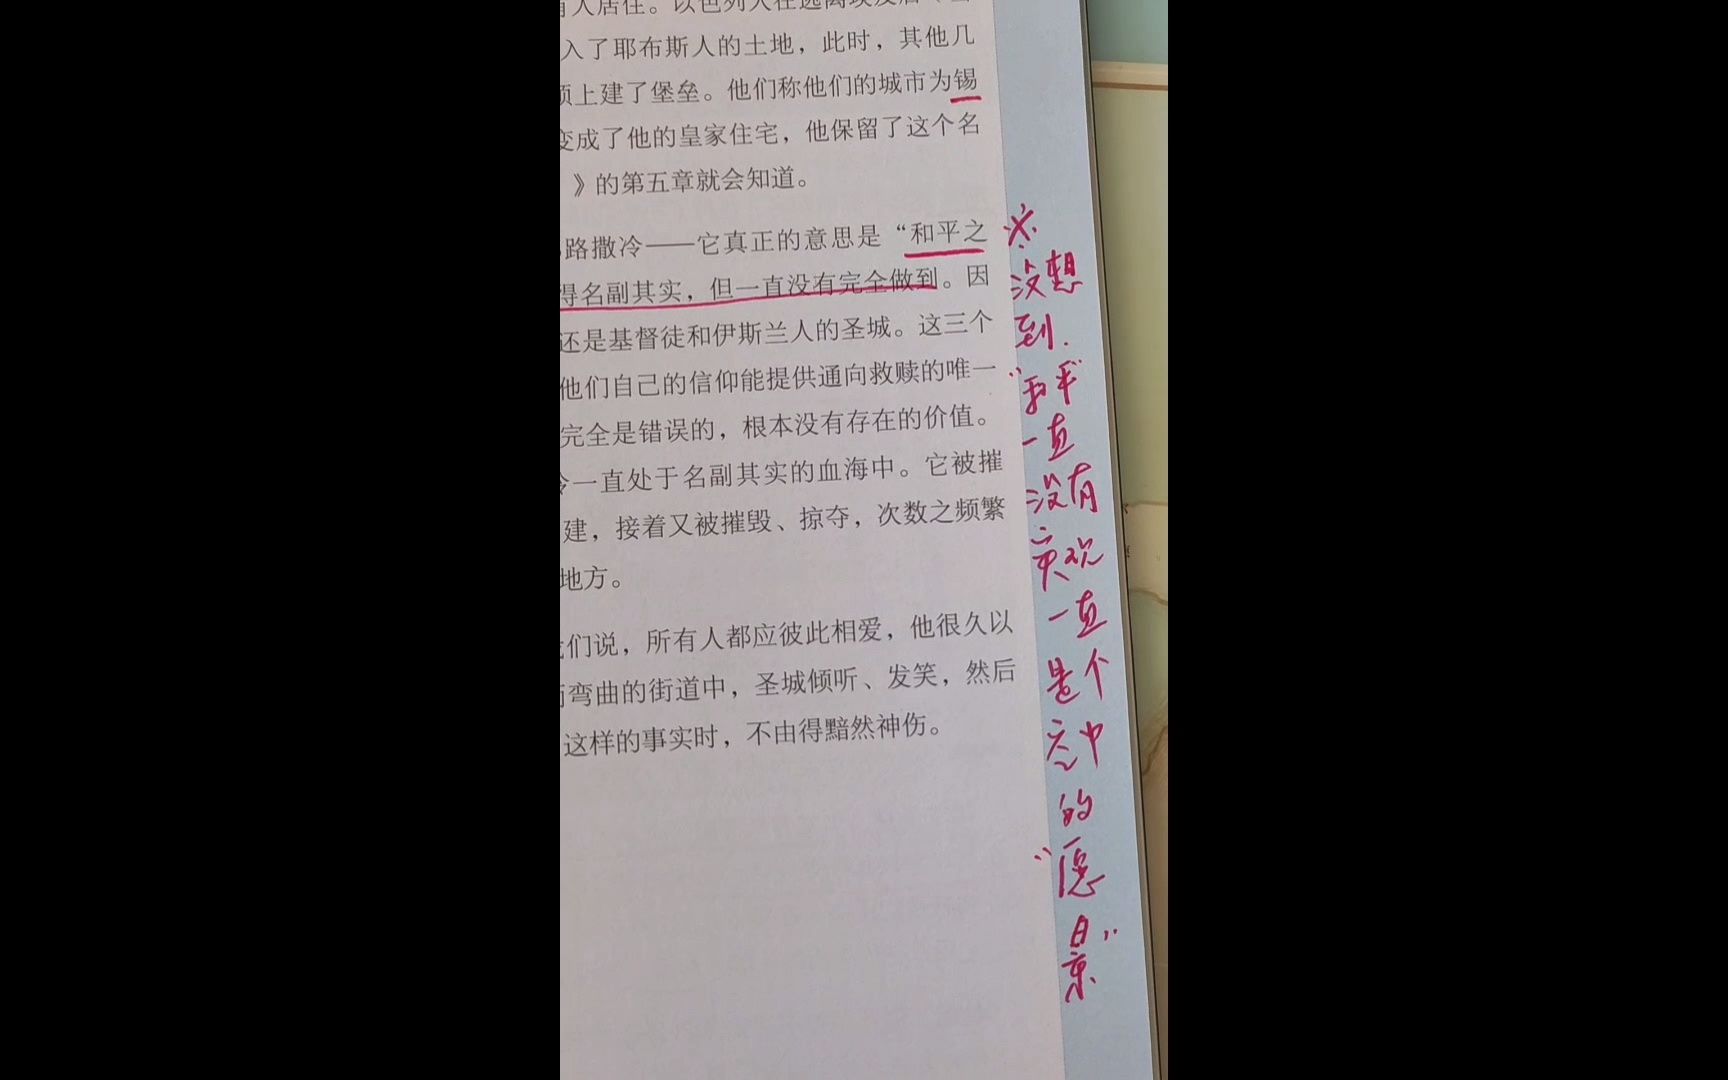 有人居住。以色列人在逃离埃及后
入了耶布斯人的土地，此时，其他几
顶上建了堡垒。他们称他们的城市为锡
变成了他的皇家住宅，他保留了这个名
》的第五章就会知道。
路撒冷——它真正的意思是“和平之
得名副其实，但一直没有完全做到。因
还是基督徒和伊斯兰人的圣城。这三个
他们自己的信仰能提供通向救赎的唯一
完全是错误的，根本没有存在的价值。
冷一直处于名副其实的血海中。它被摧
建，接着又被摧毁、掠夺，次数之频繁
地方。
我们说，所有人都应彼此相爱，他很久以
而弯曲的街道中，圣城倾听、发笑，然后
这样的事实时，不由得黯然神伤。
※
没想
到.
“和平”
一直
没有
实现
一直
是个
空中
的
“愿
景”